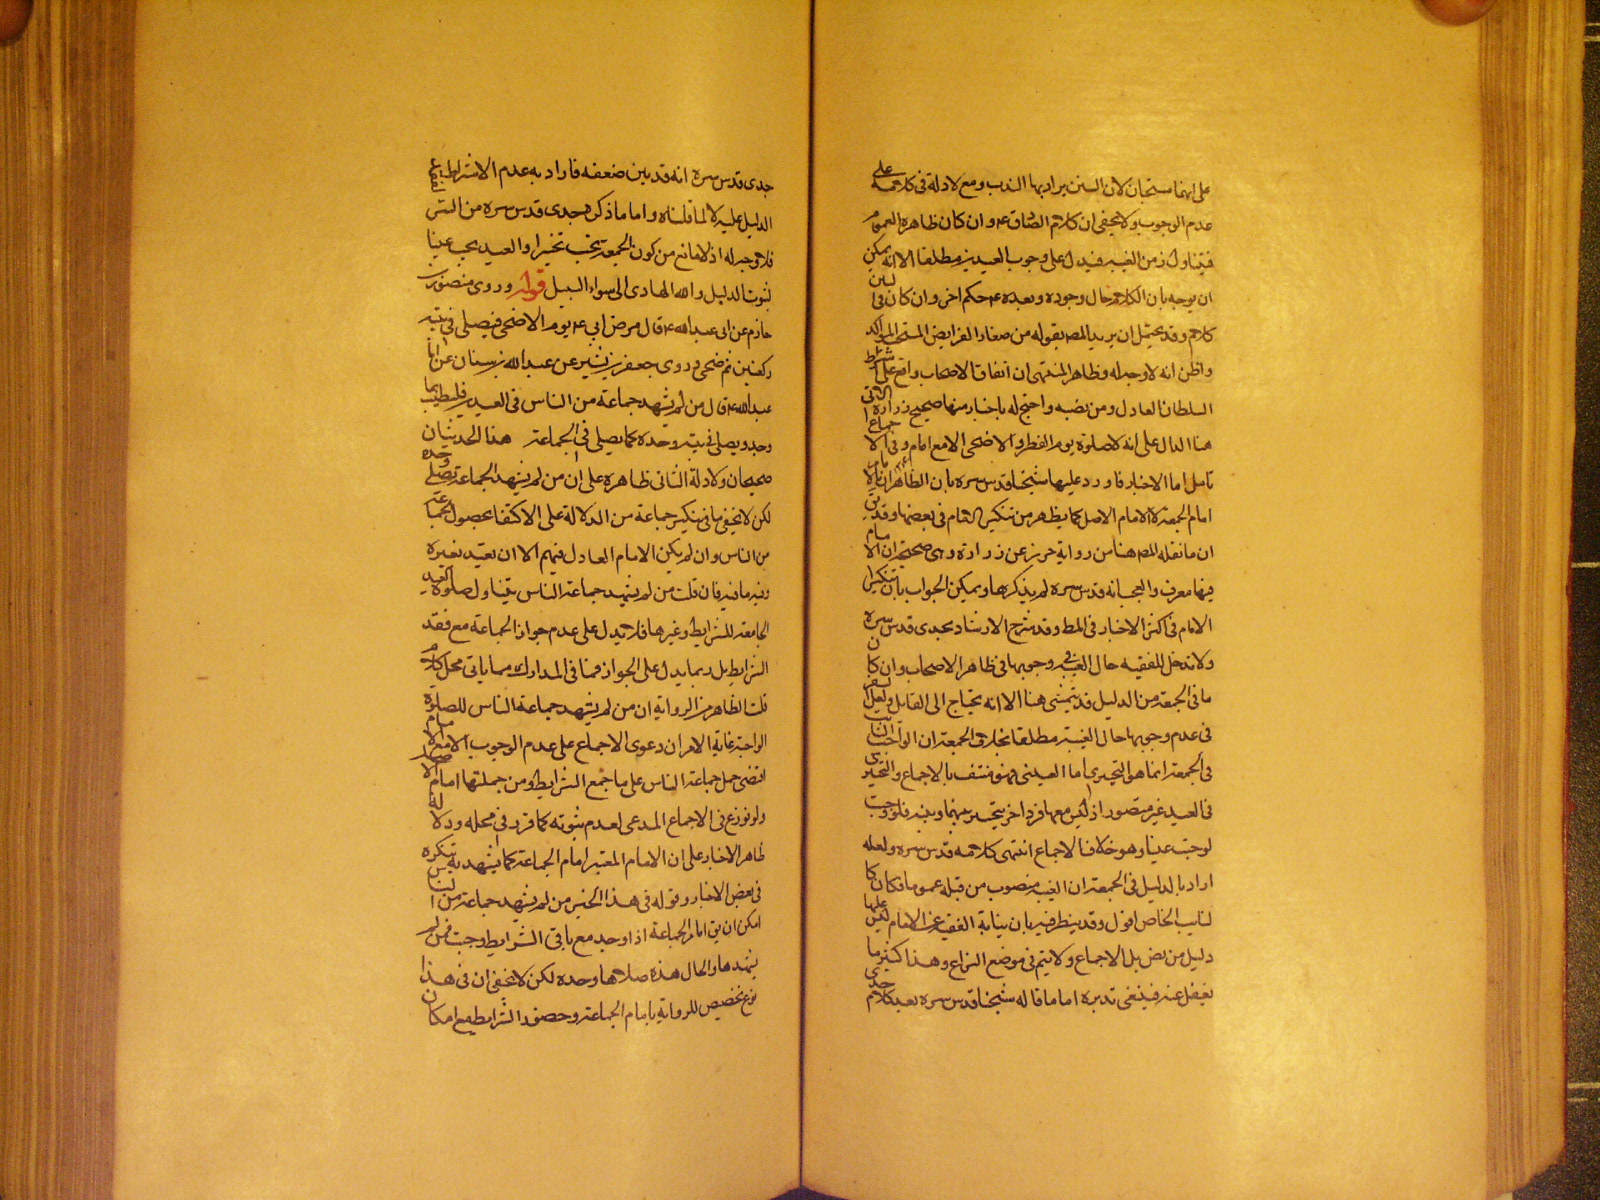 على انهما مستحبان لان السنن يراد بها الندب ومع لا دلالة فى كلامه على
عدم الوجوب ولا يخفى ان كلام الصادق ع وان كان ظاهره العموم
فيتناول زمن الغيبة فيدل على وجوب العيدين مطلقا الا انه يمكن
ان يوجه بان الكلام حال وجوده وبعده ع حكم اخر وان كان فى
كلام وقد يحتمل ان يريد المص بقوله من صغار الفرايض المستحب المؤكد
واظن انه لا وجه له وظاهر المنتهى ان اتفاق الاصحاب واقع على اشتراط
السلطان العادل ومن نصبه واحتج له باخبار منها صحيح زرارة الاتى
هنا الدال على انه لا صلوة يوم الفطر والاضحى الا مع امام وفى الاجماع
تامل اما الاخبار فاورد عليها شيخنا قدس سره بان الظاهر ان
امام الجمعة لا الامام الاصل كما يظهر من تنكير الامام فى بعضها وقد
ان ما نقله المص هنا من رواية حريز عن زرارة وهى صحيحة ان الامام
فيها معرف والعجب انه قدس سره لم يذكرها ويمكن الجواب بان تنكير
الامام فى اكثر الاخبار فى المط وقد شرح الارشاد لجدى قدس سره
ولا مدخل للفقيه حال الغيبة فى وجوبها فى ظاهر الاصحاب وان كان
ما فى الجمعة من الدليل قد يتمشى هنا الا انه يحتاج الى القايل ولعل السر
فى عدم وجوبها حال الغيبة مطلقا بخلاف الجمعة ان الواجب الثابت
فى الجمعة انما هو التخييرى اما العينى فهو منتف بالاجماع والتخييرى
فى العيد غير متصور اذ ليس معها فرد اخر يتخير بينها وبينه فلو وجبت
لوجبت عينا وهو خلاف الاجماع انتهى كلامه قدس سره ولعله
اراد بالدليل فى الجمعة ان الفقيه منصوب من قبله عموما فكان كا
لنايب الخاص اقول وقد ينظر فيه بان نيابة الفقيه عن الامام ليس عليها
دليل من نص بل الاجماع ولا يتم فى موضع النزاع وهذا كثير ما
يغفل عنه فينبغى تدبره اما ما قاله شيخنا قدس سره بعد كلام جدى
جدى قدس سره انه قد بين ضعفه فاراد به عدم الاشتراط
الدليل عليه لا لما قلناه واما ما ذكره جدى قدس سره من السر
فلا وجه له اذ لا مانع من كون الجمعة تجب تخييرا والعيد يجب عينا
لثبوت الدليل والله الهادى الى سواء السبيل قوله وروى منصور بن
حازم عن ابى عبد الله ع قال مرض ابى ع يوم الاضحى فيصلى فى بيته
ركعتين ثم ضحى وروى جعفر بن بشير عن عبد الله بن سنان عن ابى
عبد الله ع قال من لم يشهد جماعة من الناس فى العيدين فليغتسل
وحده ويصلى فى بيته وحده كما يصلى فى الجماعة هذا الحديثان
صحيحان ودلالة الثانى ظاهره على ان من لم يشهد الجماعة يصلى وحده
لكن لا يخفى ما فى تنكير جماعة من الدلالة على الاكتفا بحصول جماعة
من الناس وان لم يكن الامام العادل فيهم الا ان تقييد بغيره
وفيه ما فيه فان قلت من لم يشهد جماعة الناس يتناول صلوة العيد
الجامعة للشرايط وغيرها فلا يدل على عدم جواز الجماعة مع فقد
الشرايط بل ربما يدل على الجواز فما فى المدارك مما ياتى محل كلام
قلت الظاهر من الرواية ان من لم يشهد جماعة الناس للصلوة
الواجبة غاية الامر ان دعوى الاجماع على عدم الوجوب الا مع الامام
اقتضى حمل جماعة الناس على ما جمع الشرايط ومن جملتها امام الاصل
ولو نوزع فى الاجماع المدعى لعدم ثبوته كما قرر فى محله ودلالة
ظاهر الاخبار على ان الامام المعتبر امام الجماعة كما يشهد به تنكيره
فى بعض الاخبار وقوله فى هذا الخبر من لم يشهد جماعة من الناس
امكن ان يق امام الجماعة اذا وجد مع باقى الشرايط وجبت فمن لم
يشهدها والحال هذه صلاها وحده لكن لا يخفى ان فى هذا
نوع تخصيص للرواية بامام الجماعة وحصول الشرايط مع امكان